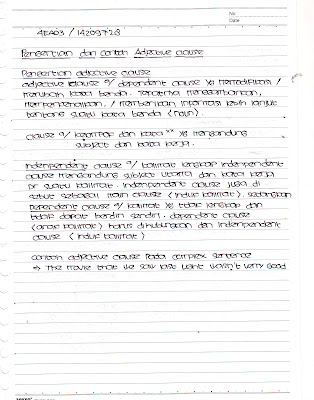 No
Date
4EA03 / 14209728
Pengertian dan Contoh Adjective clause
Pengertian adjective clause
adjective clause a/ dependent clause yg memodifikasi /
kata benda. menggambarkan,
mempertanyakan, / memberikan informasi lebih lanjut
tentang suatu kata benda (noun).
clause a/ kelompok dari kata yg mengandung
subject dan kata kerja.
independent clause a/ kalimat lengkap independent
clause mengandung subject utama dan kata kerja
dr suatu kalimat. independent clause juga di
sebut sebagai main clause (induk kalimat). sedangkan
dependent clause a/ kalimat yg tidak lengkap dan
tidak dapat berdiri sendiri. dependent clause
(anak kalimat) harus dihubungkan dgn independent
clause (induk kalimat)
contoh adjective clause pada complex sentence
→ The movie that we saw last night wasn't very good